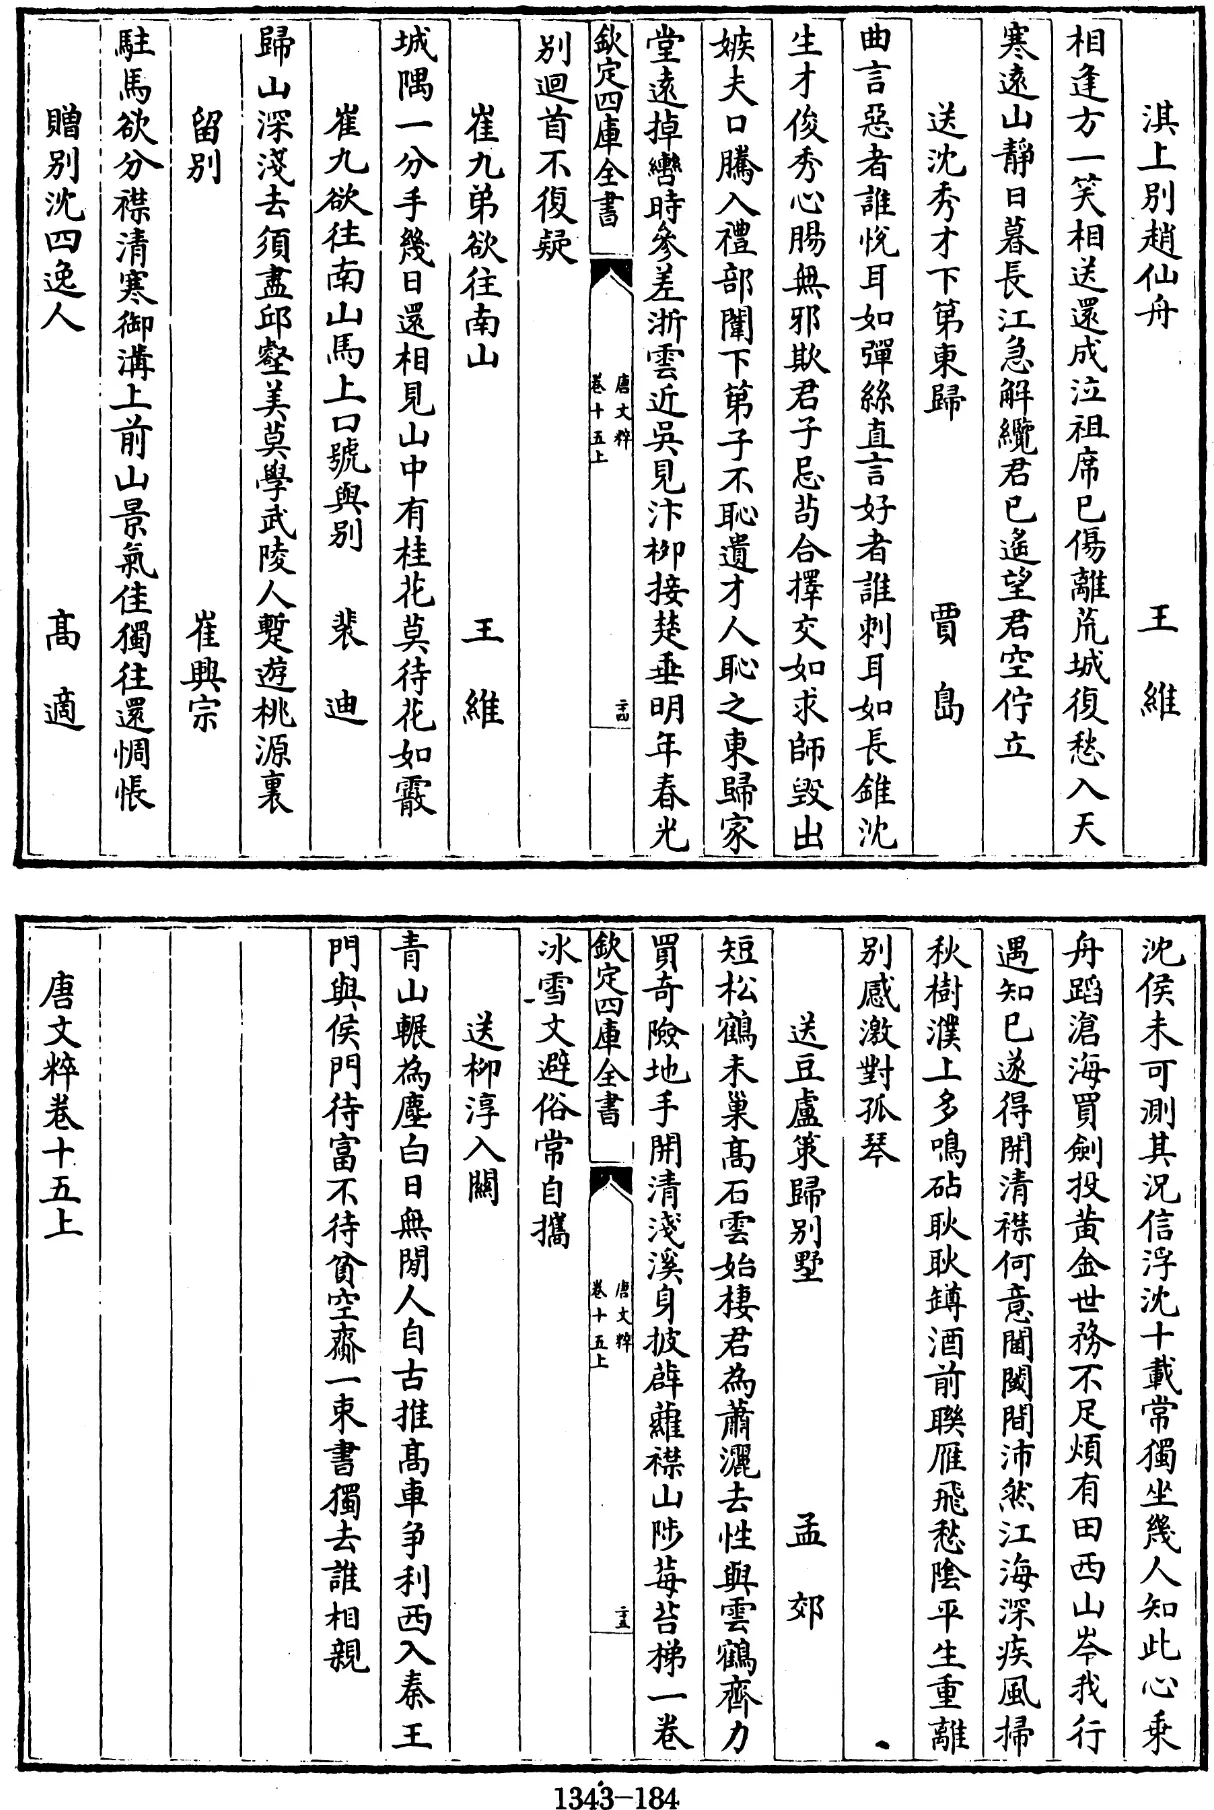 淇上別趙仙舟　王維
相逢方一笑相送還成泣祖席已傷離荒城復愁入天
寒遠山靜日暮長江急解纜君已遙望君空佇立
送沈秀才下第東歸　賈島
曲言惡者誰悅耳如彈絲直言好者誰刺耳如長錐沈
生才俊秀心腸無邪欺君子忌茍合擇交如求師毀出
嫉夫口騰入禮部闈下第子不恥遺才人恥之東歸家
堂遠掉轡時參差浙雲近吳見汴柳接楚垂明年春光
欽定四庫全書
唐文粹
卷十五上
二十四
別迴首不復疑
崔九弟欲往南山　王維
城隅一分手幾日還相見山中有桂花莫待花如霰
崔九欲往南山馬上口號與別　裴迪
歸山深淺去須盡邱壑美莫學武陵人暫遊桃源裏
留別　崔興宗
駐馬欲分襟清寒御溝上前山景氣佳獨往還惆悵
贈別沈四逸人　高適
沈侯未可測其況信浮沈十載常獨坐幾人知此心乘
舟蹈滄海買劍投黃金世務不足煩有田西山岑我行
遇知己遂得開清襟何意閫閾間沛然江海深疾風掃
秋樹濮上多鳴砧耿耿罇酒前聯雁飛愁陰平生重離
別感激對孤琴
送豆盧策歸別墅　孟郊
短松鶴未巢高石雲始棲君為蕭灑去性與雲鶴齊力
買奇險地手開清淺溪身披薜蘿襟山陟莓苔梯一卷
欽定四庫全書
唐文粹
卷十五上
二十五
冰雪文避俗常自攜
送柳淳入關
青山輾為塵白日無閒人自古推高車爭利西入秦王
門與侯門待富不待貧空齋一束書獨去誰相親
唐文粹卷十五上
1343-184